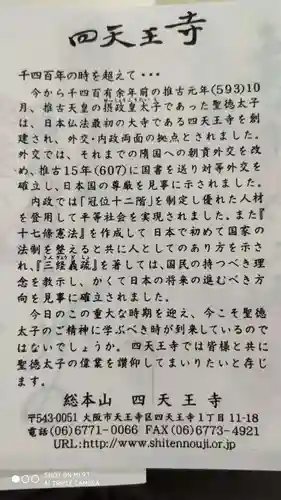 四天王寺
千四百年の時を超えて・・・
今から千四百有余年前の推古元年(593)10
月、推古天皇の摂政皇太子であった聖徳太子
は、日本仏法最初の大寺である四天王寺を創
建され、外交・内政両面の拠点とされました。
外交では、それまでの隋国への朝貢外交を改
め、推古15年(607)に国書を送り対等外交を
確立し、日本国の尊厳を見事に示されました。
内政では「冠位十二階」を制定し優れた人材
を登用して平等社会を実現されました。また『
十七條憲法』を作成して日本で初めて国家の
法制を整えると共に人としてのあり方を示さ
れ、『三経義疏』を著しては、国民の持つべき理
念を教示し、かくて日本の将来の進むべき方
向を見事に確立されました。
今日のこの重大な時期を迎え、今こそ聖徳
太子のご精神に学ぶべき時が到来しているので
はないでしょうか。四天王寺では皆様と共に
聖徳太子の偉業を讃仰してまいりたいと存じ
ます。
総本山 四天王寺
〒543-0051 大阪市天王寺区四天王寺1丁目11-18
電話(06)6771-0066 FAX(06)6773-4921
URL:http://www.shitennouji.or.jp
SHOT ON MI 9T
AI TRIPLE CAMERA